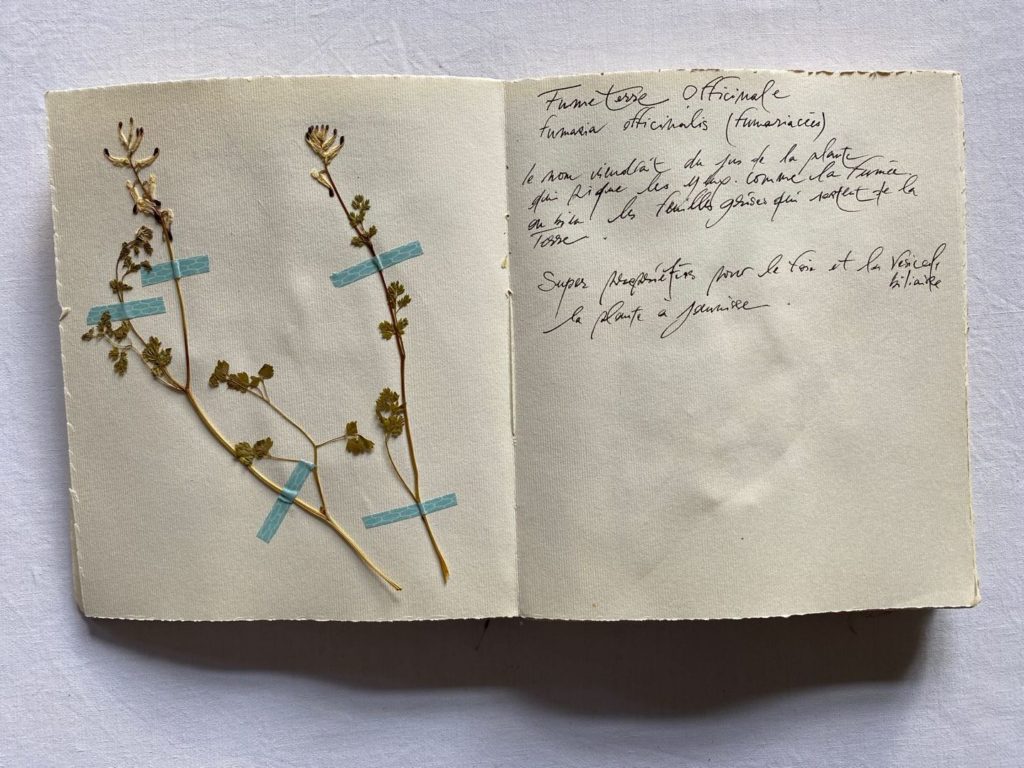 Fumeterre Officinale
fumaria officinalis (fumariacées)
le nom viendrait du jus de la plante
qui pique les yeux. comme la Fumée
ou bien les feuilles grises qui sortent de la
Terre.
Super propriétés pour le foie et la Vésicule
biliaire
la plante a jaunisse.